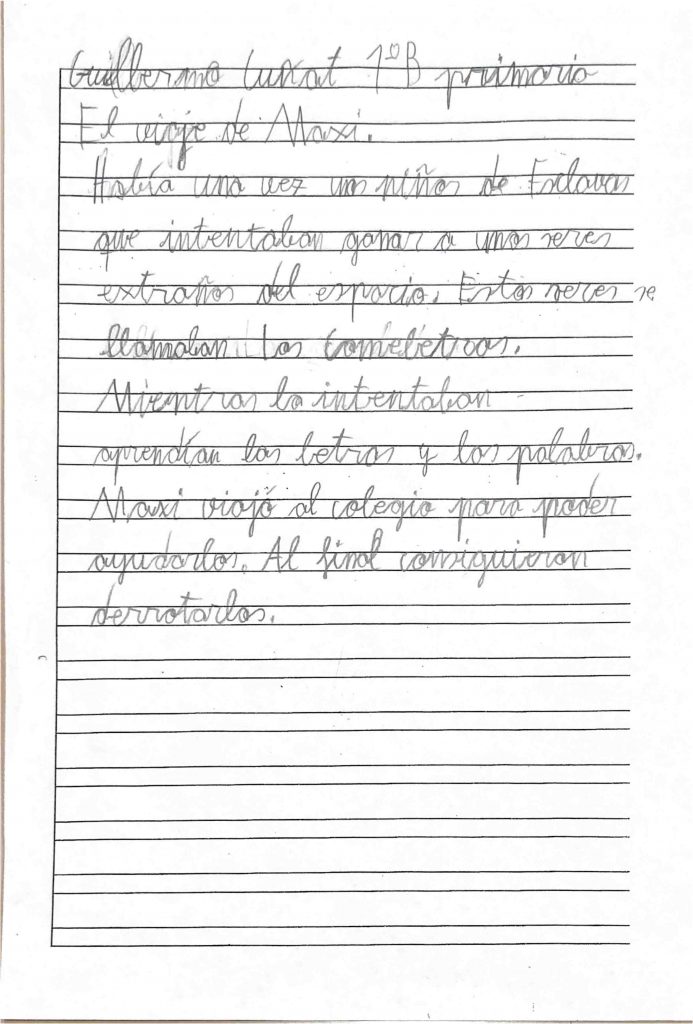 Guillermo Luxat 1ºB primaria
El viaje de Maxi.
Había una vez unos niños de Esclavas
que intentaban ganar a unos seres
extraños del espacio. Estos seres se
llamaban los comeletras.
Mientras lo intentaban
aprendían las letras y las palabras.
Maxi viajó al colegio para poder
ayudarlos. Al final consiguieron
derrotarlos.